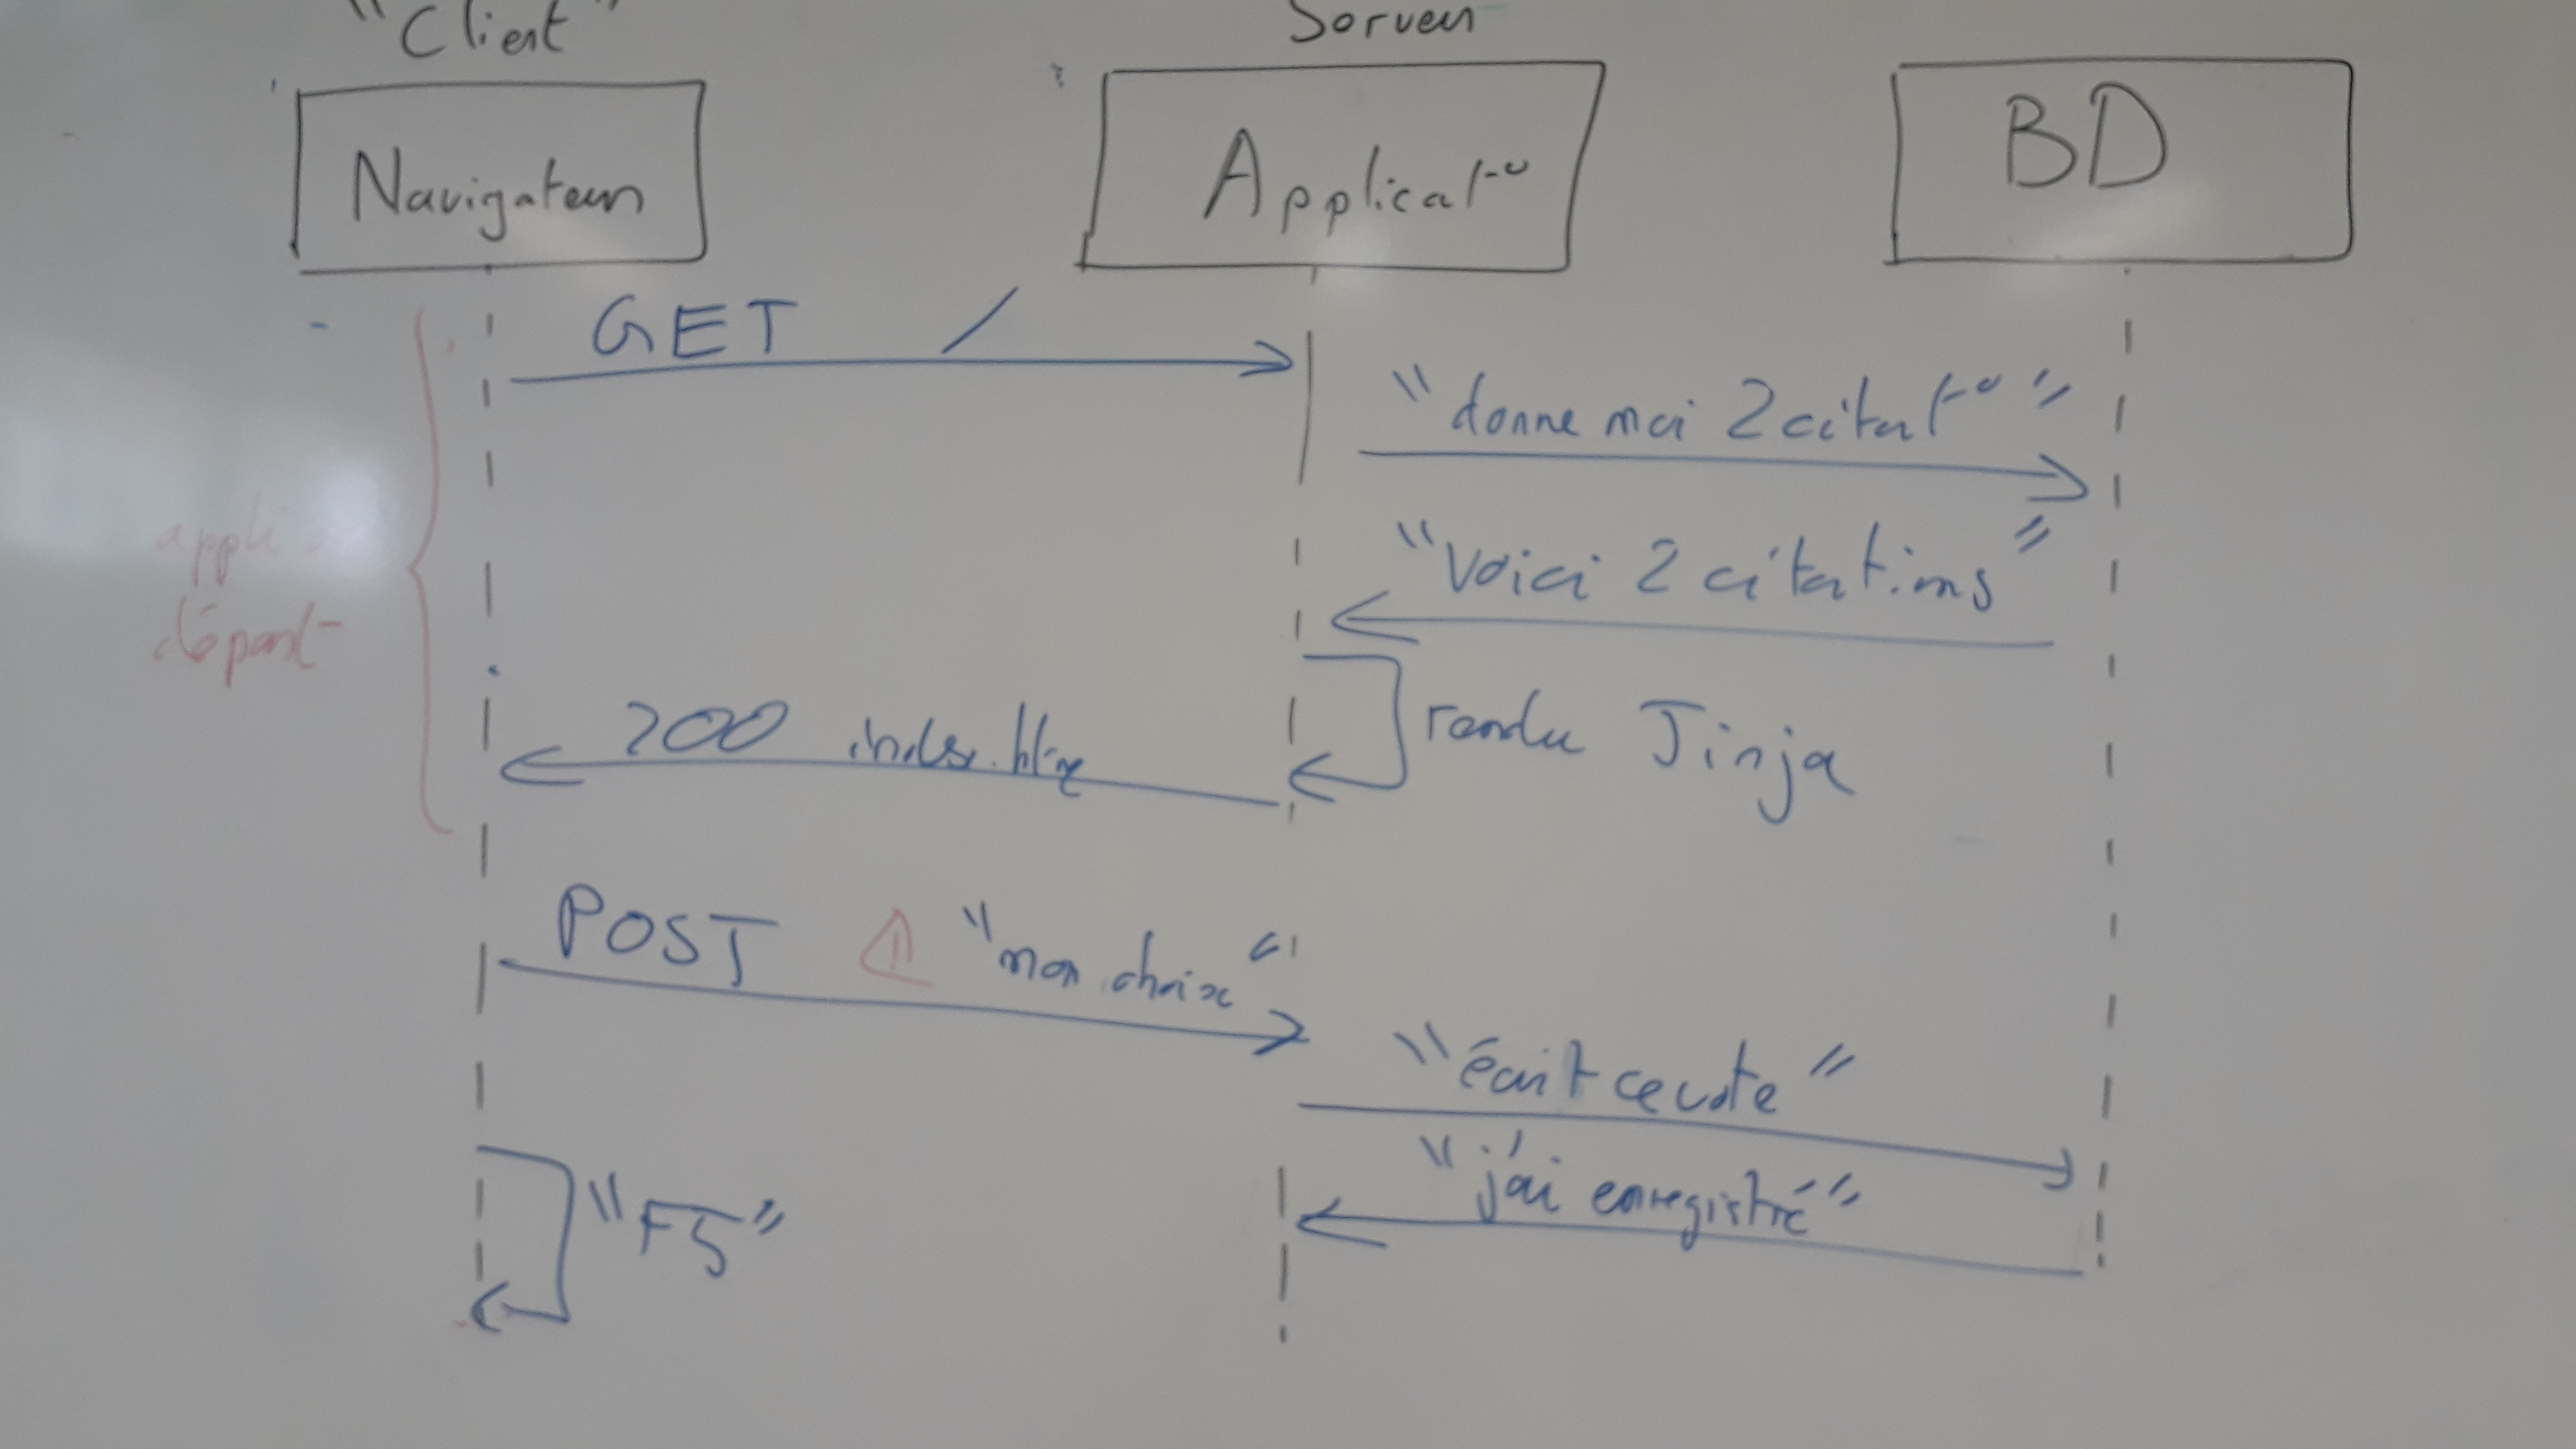 "Client"
Serveur
Navigateur
Applicat°
BD
GET /
"donne moi 2 citat°"
"Voici 2 citations"
appli
départ
rendu Jinja
200 index.html
POST ⚠ "mon choix"
"écrit ce vote"
"j'ai enregistré"
"F5"